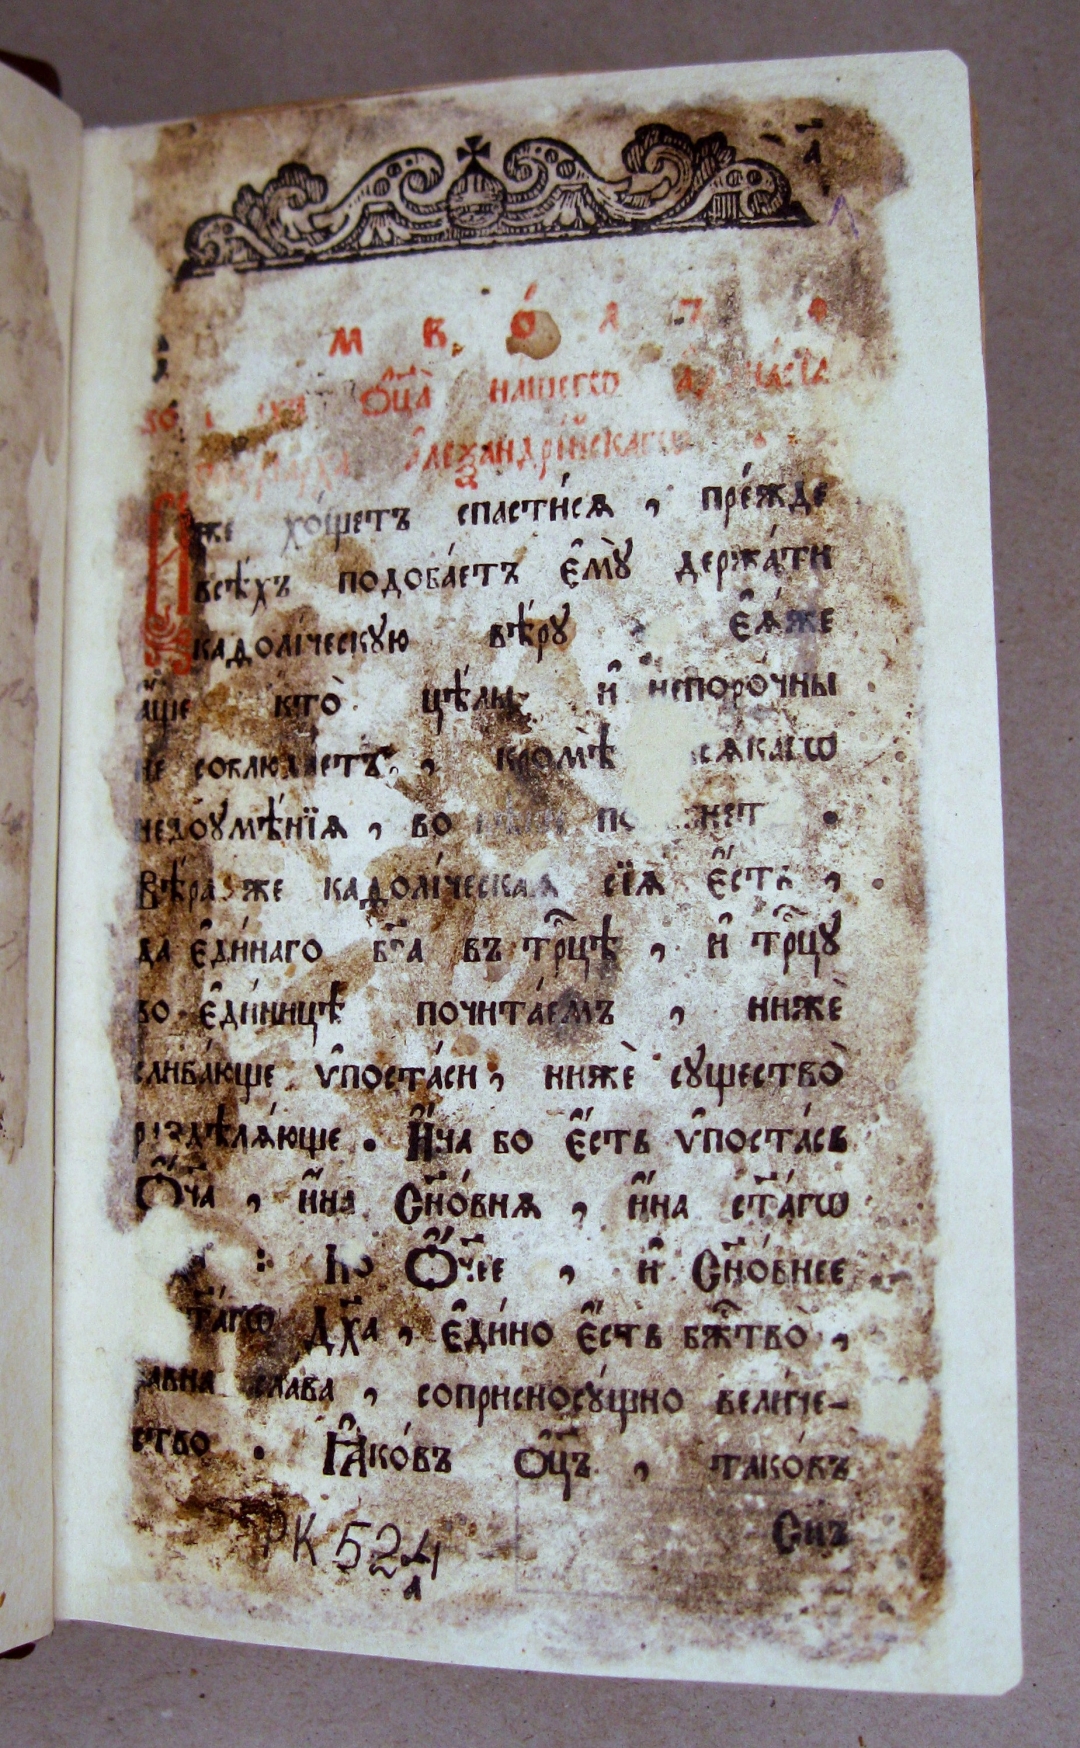 а҃
м в ѻ́ л ъ
Ѻ҆ц҃а̀ нашегѡ
а҆леѯандрі́йскагѡ
же хо́щетъ спасти́сѧ , пре́жде
всѣ́хъ подоба́етъ є҆мꙋ̀ держа́ти
каѳолі́ческꙋю вѣ́рꙋ є҆ѧ́же
а́ще кто̀ цѣ́лы и҆ непоро́чны
не соблюда́етъ , кромѣ̀ всѧ́кагѡ
недоꙋмѣ́нїѧ , во
Вѣ́ра же каѳолі́ческаѧ сїѧ̀ є҆́сть ,
да є҆ди́наго бг҃а въ трⷪ҇цѣ , и҆ трⷪ҇цꙋ
во є҆ди́ницѣ почита́емъ , нижѐ
слива́юще ѵ҆поста́си , нижѐ сꙋщество̀
раздѣлѧ́юще . И҆́на бо є҆́сть ѵ҆поста́сь
Ѻ҆́ч҃а , и҆́на Сн҃о́внѧ , и҆́на ст҃а́гѡ
Но Ѻ҆́ч҃ее , и҆ Сн҃о́внее
ст҃а́гѡ Дх҃а , є҆ди́но є҆́сть бж҃тво̀ ,
равна слава , соприсносꙋ́щно вели́че-
ство . Ꙗ҆ко́въ Ѻ҆ц҃ъ , тако́въ
Сн҃ъ
РК 524
а